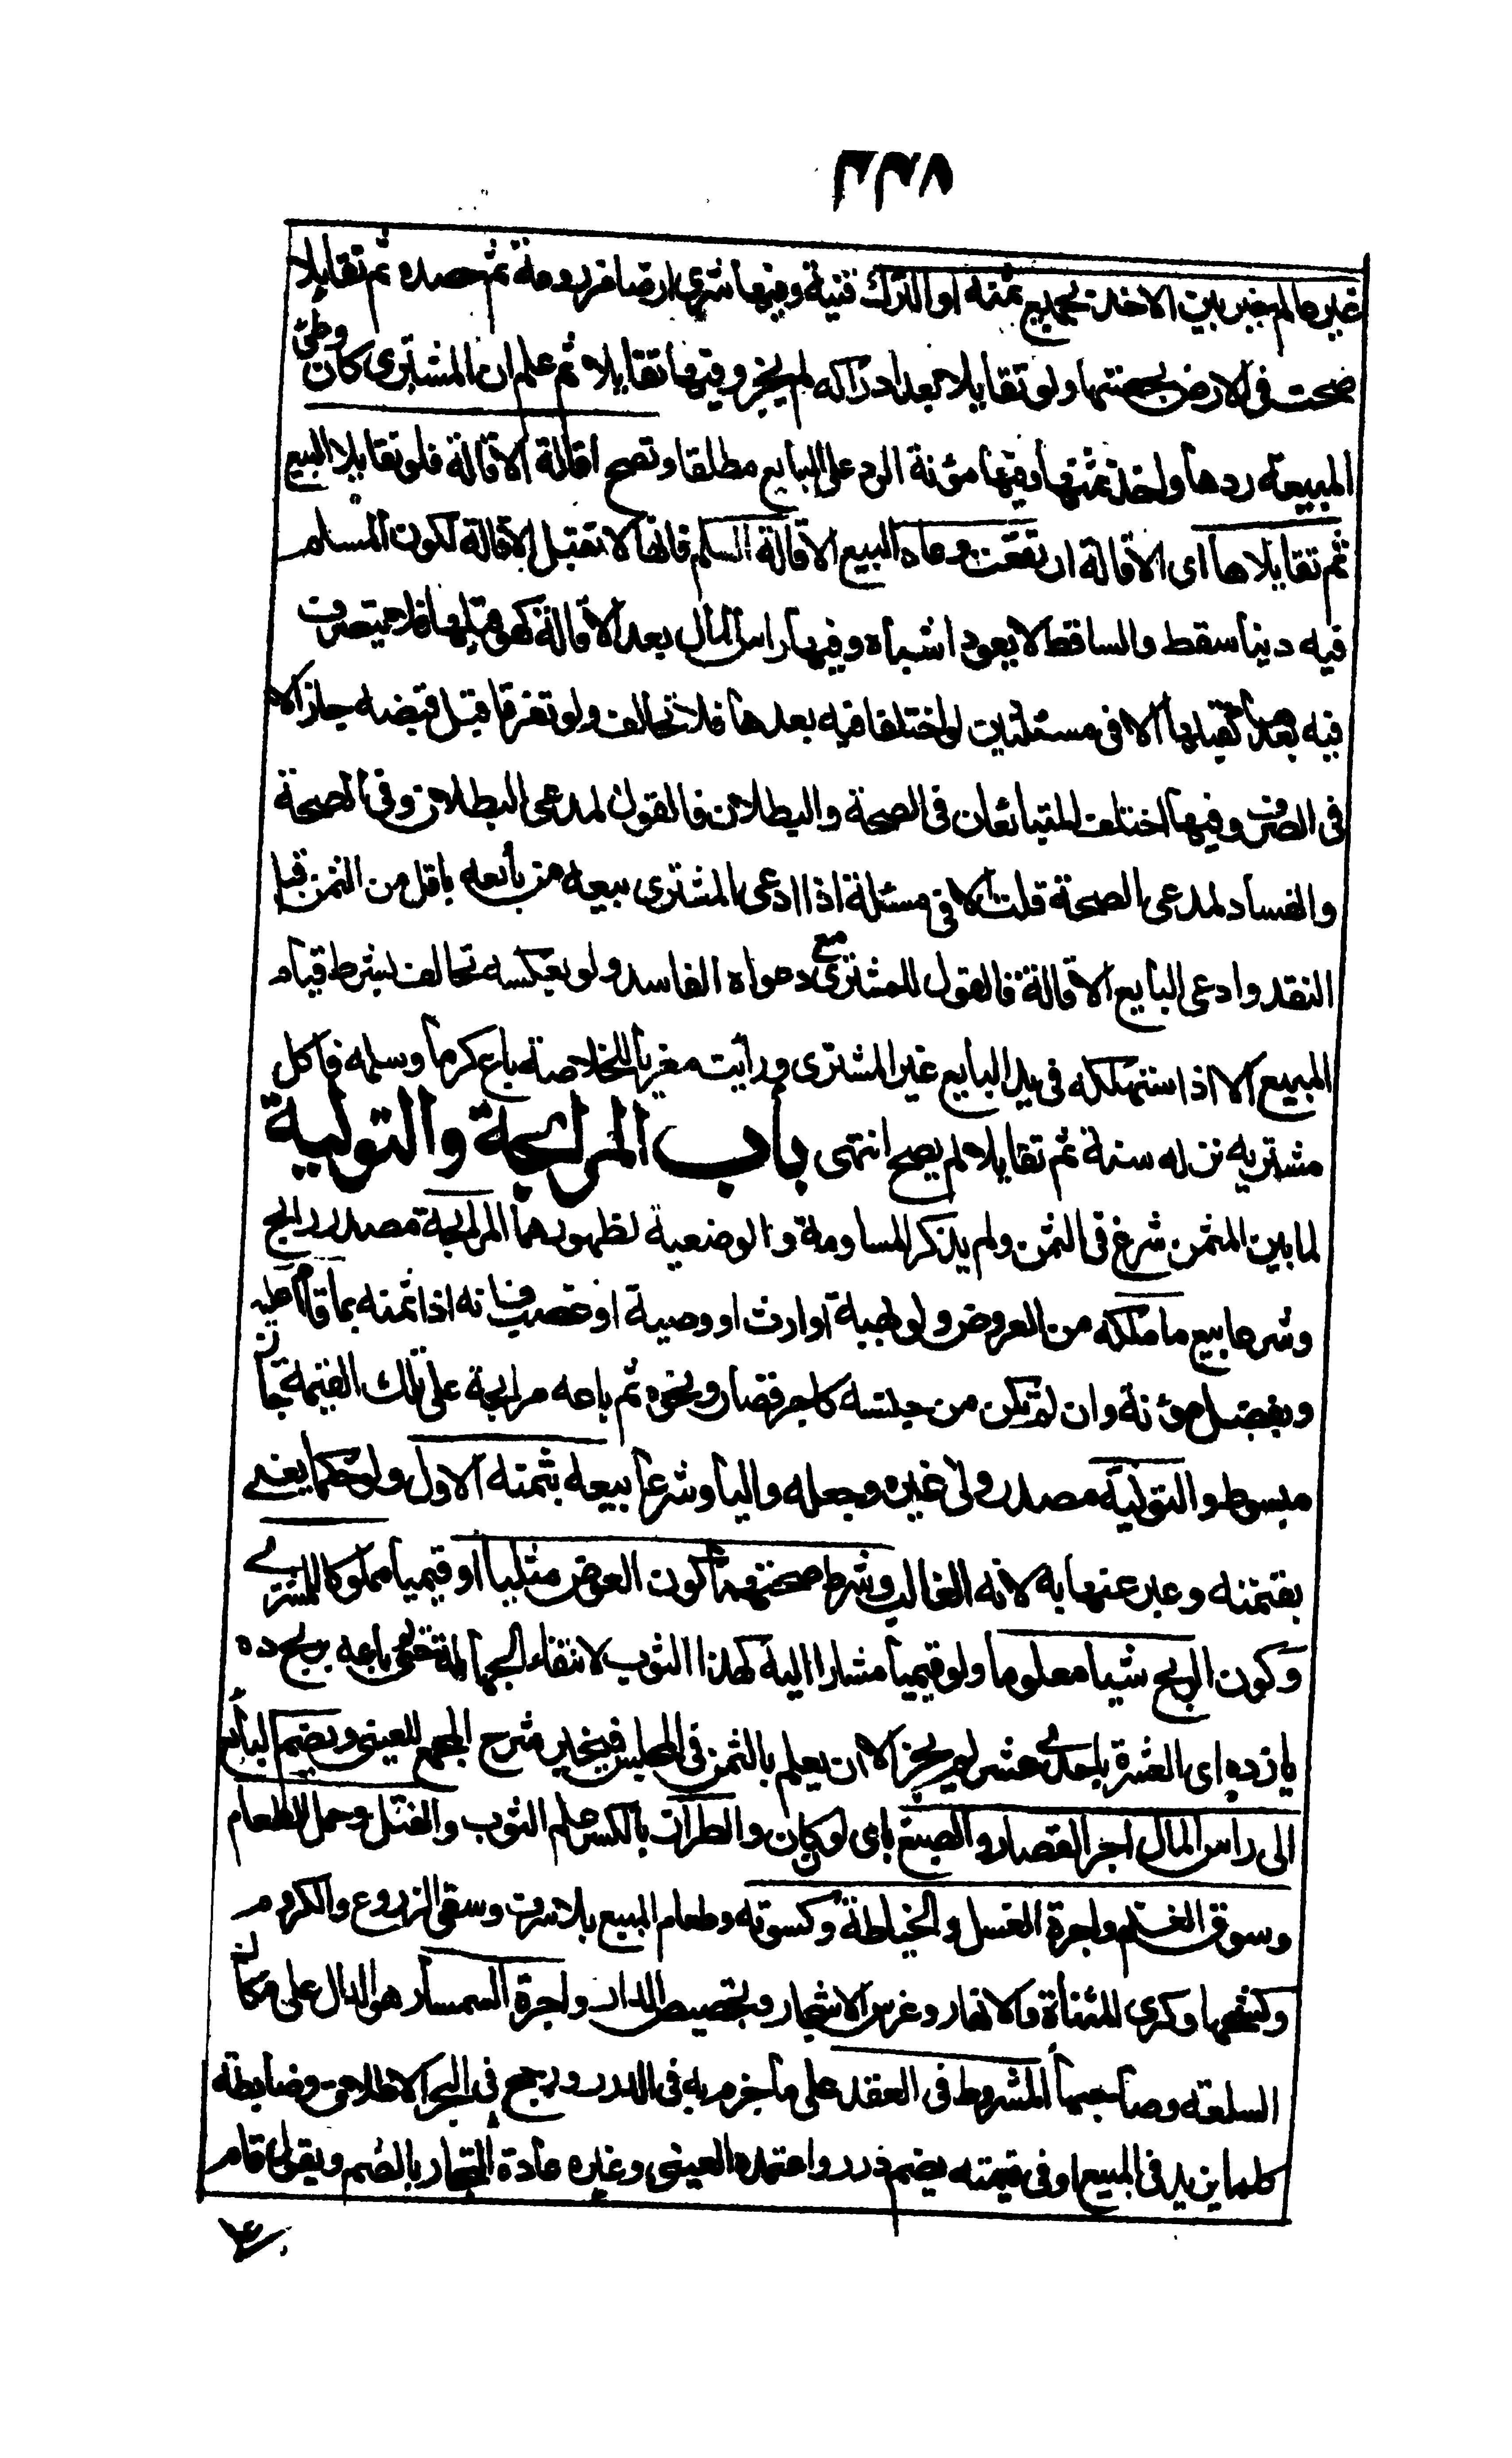 ٣٣٨
غيره ما لم يخير بين الاخذ بجميع ثمنه او الترك قنية وفيها شرى ارضا مزروعة ثم حصده ثم تقايلا
صحت فى الارض بحصتها ولو تقايلا بعد ادراكه لم يجز وفيها تقايلا ثم علم ان المشترى كان وطئ
المبيعة ردها واخذ ثمنها وفيها مؤنة الرد على البايع مطلقا وتصح اقالة الاقالة فلو تقايلا البيع
ثم تقايلاها اى الاقالة ارتفعت وعاد البيع الا اقالة السلم فانها لا تقبل الاقالة لكون المسلم
فيه دينا سقط والساقط لا يعود اشباه وفيها راس المال بعد الاقالة كهو قبلها فلا يتصرف
فيه بعدها كقبلها الا فى مسئلتين لو اختلفا فيه بعدها فلا تحالف ولو تفرقا قبل قبضه جاز الا
فى الصرف وفيها اختلف المتبائعان فى الصحة والبطلان فالقول لمدعى البطلان وفى الصحة
والفساد لمدعى الصحة قلت الا فى مسئلة اذا ادعى المشترى بيعه من بائعه باقل من الثمن قبل
النقد وادعى البايع الاقالة فالقول للمشترى مع دعواه الفاسد ولو بعكسه تحالف بشرط قيام
المبيع الا اذا استهلكه فى يد البايع غير المشترى ورأيت معزيا للخلاصة باع كرما وسلمه فاكل
مشتريه نزله سنة ثم تقايلا لم يصح انتهى باب المرابحة والتولية
لما بين المثمن شرع فى الثمن ولم يذكر المساومة والوضعية لظهورهما المرابحة مصدر رابح
وشرعا بيع ما ملكه من العروض ولو بهبة او ارث او وصية او غصب فانه اذا ثمنه بما قام عليه
وبفضل مؤنة وان لم تكن من جنسه كاجر قصار ونحوه ثم باعه مرابحة على تلك القيمة جاز
مبسوط والتولية مصدر ولى غيره وجعله واليا وشرعا بيعه بثمنه الاول ولو حكما يعنے
بقيمته وعبر عنها به لانه الغالب وشرط صحتهما كون العوض مثليا او قيميا مملوكا للمشترے
وكون الربح شيا معلوما ولو قيميا مشارا اليه كهذا الثوب لانتفاء الجهالة حتى لو باعه بربح ده
يازده اى العشرة باحدے عشر لم يجز الا ان يعلم بالثمن فى المجلس فيخير شرح المجمع للعينى ويضم البائع
الى راس المال اجر القصار والصبغ باى لون كان والطراز بالكسر علم الثوب والفتل وحمل الطعام
وسوق الغنم واجرة الغسل والخياطة وكسوته وطعام المبيع بلا سرف وسقى الزروع والكروم
وكسحها وكرى المسناة والانهار وغرس الاشجار وتجصيص الدار واجرة السمسار هو الدال على مكان
السلعة وصاحبها المشروط فى العقد على ما جزم به فى الدرر ورجح فى البحر الاطلاق وضابطه
كلما يزيد فى المبيع او فى قيمته يضم درر واعتمده العينى وغيره عادة التجار بالضم ويقول قام